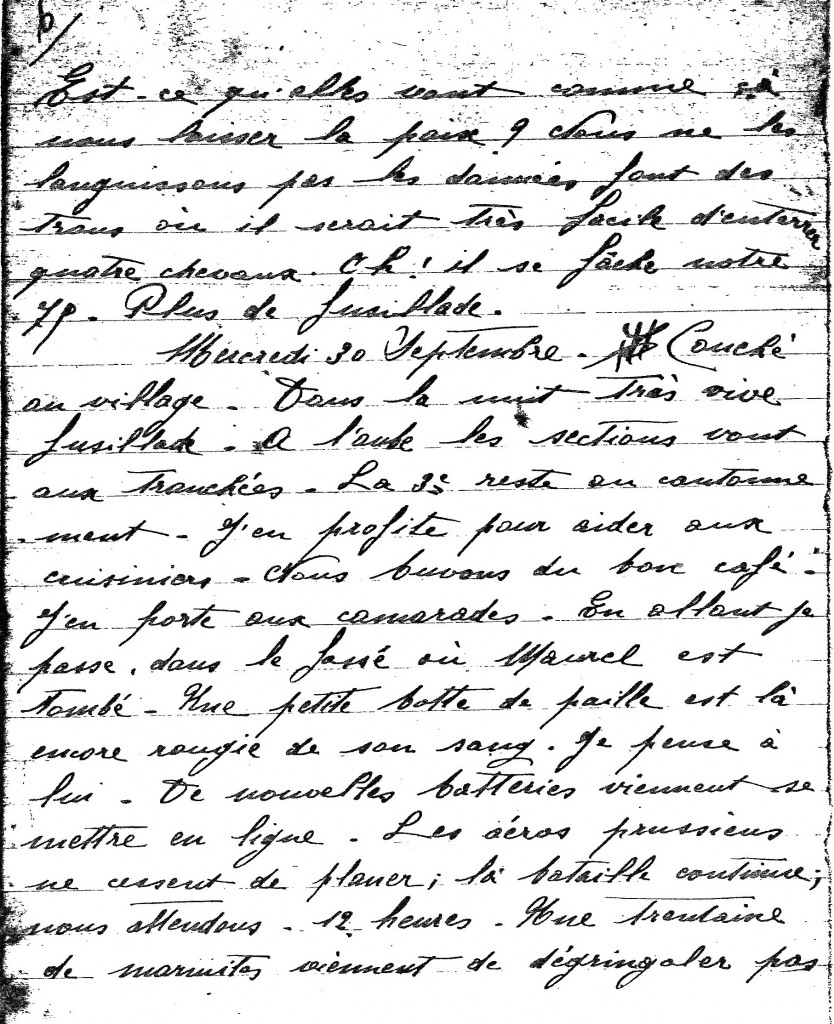 6/
Est-ce qu'elles vont comme çà
nous laisser la paix ? Nous ne les
languissons pas les damnées font des
trous où il serait très facile d'enterrer
quatre chevaux. Oh! il se fâche notre
75. Plus de fusillade.
Mercredi 30 Septembre - Couché
au village - Dans la nuit très vive
fusillade - A l'aube les sections vont
aux tranchées - La 3e reste au cantonne
-ment - J'en profite pour aider aux
cuisiniers - Nous buvons du bon café -
J'en porte aux camarades - En allant je
passe dans le fossé où Maurel est
tombé - Une petite botte de paille est là
encore rougie de son sang. Je pense à
lui - De nouvelles batteries viennent se
mettre en ligne - Les aéros prussiens
ne cessent de planer; la bataille continue;
nous attendons - 12 heures - Une trentaine
de marmites viennent de dégringoler pas